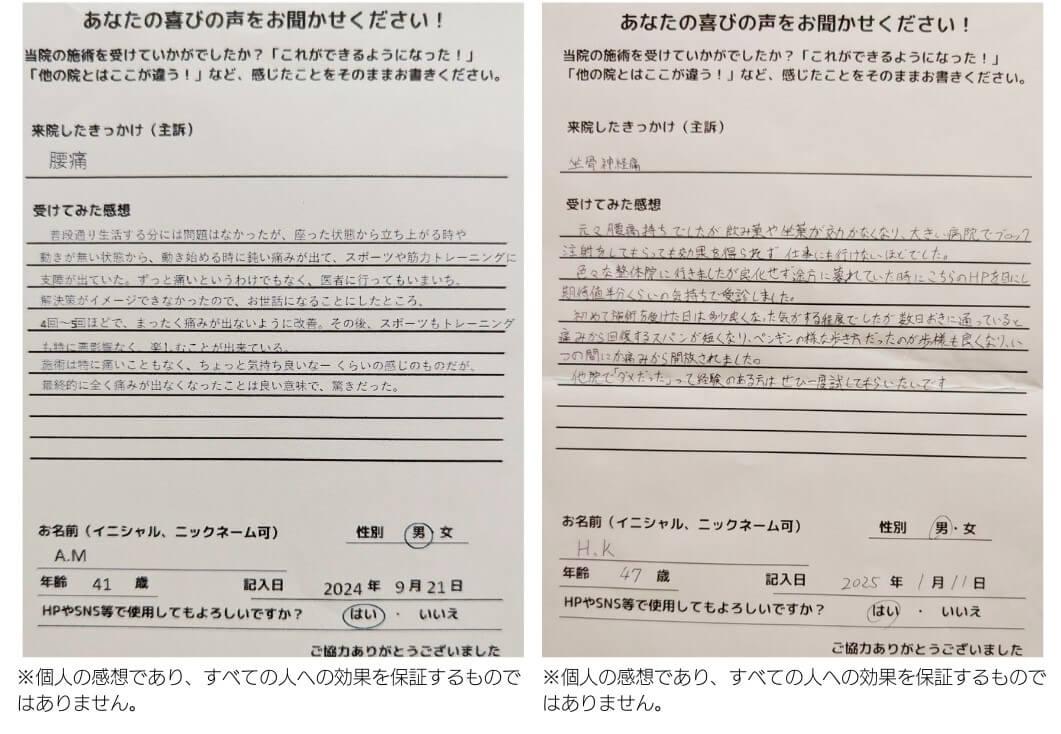 あなたの喜びの声をお聞かせください！
当院の施術を受けていかがでしたか？「これができるようになった！」
「他の院とはここが違う！」など、感じたことをそのままお書きください。
来院したきっかけ（主訴）
腰痛
受けてみた感想
普段通り生活する分には問題はなかったが、座った状態から立ち上がる時や
動きが無い状態から、動き始める時に鈍い痛みが出て、スポーツや筋力トレーニングに
支障が出ていた。ずっと痛いというわけでもなく、医者に行ってもいまいち。
解決策がイメージできなかったので、お世話になることにしたところ、
4回～5回ほどで、まったく痛みが出ないように改善。その後、スポーツもトレーニング
も特に悪影響なく、楽しむことが出来ている。
施術は特に痛いこともなく、ちょっと気持ち良いなー くらいの感じのものだが、
最終的に全く痛みが出なくなったことは良い意味で、驚きだった。
お名前（イニシャル、ニックネーム可）
性別 男・女
A.M
年齢 41 歳 記入日 2024 年 9 月 21 日
HPやSNS等で使用してもよろしいですか？ はい ・ いいえ
ご協力ありがとうございました
※個人の感想であり、すべての人への効果を保証するもので
はありません。
あなたの喜びの声をお聞かせください！
当院の施術を受けていかがでしたか？「これができるようになった！」
「他の院とはここが違う！」など、感じたことをそのままお書きください。
来院したきっかけ（主訴）
坐骨神経痛
受けてみた感想
元々腰痛持ちでしたが飲み薬や坐薬が効かなくなり、大きい病院でブロック
注射をしてもらっても効果を得られず 仕事にも行けないほどでした。
色々な整体院に行きましたが良化せず途方に暮れていた時にこちらのHPを目にし
期待値半分くらいの気持ちで受診しました。
初めて施術を受けた日は多少良くなった気がする程度でしたが数日おきに通っていると
痛みから回復するスパンが短くなり、ペンギンの様な歩き方だったのが歩様も良くなり、い
つの間にか痛みから開放されました。
他院で「ダメだった」って経験のある方は ぜひ一度試してもらいたいです
お名前（イニシャル、ニックネーム可）
性別 男・女
H.K
年齢 47 歳 記入日 2025 年 1 月 11 日
HPやSNS等で使用してもよろしいですか？ はい ・ いいえ
ご協力ありがとうございました
※個人の感想であり、すべての人への効果を保証するもので
はありません。